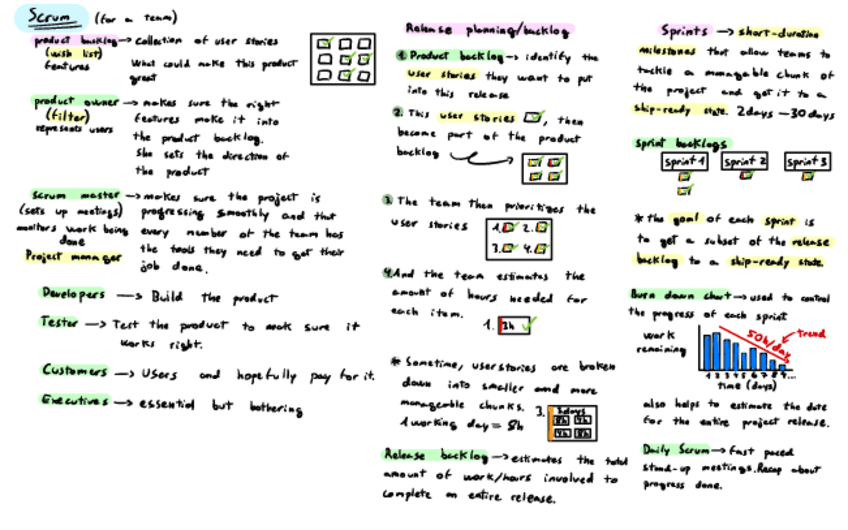 Scrum (for a team)
product backlog → collection of user stories
(wish list)
features
What could make this product
great
product owner → makes sure the right
(filter)
represents users
features make it into
the product backlog.
She sets the direction of
the product
Scrum master → makes sure the project is
(sets up meetings)
monitors work being
done
Project manager
progressing smoothly and that
every member of the team has
the tools they need to get their
job done.
Developers → Build the product
Tester → Test the product to make sure it
works right.
Customers → Users and hopefully pay for it.
Executives → essential but bothering
Release planning/backlog
1. Product backlog → identify the
user stories they want to put
into this release
2. This user stories ☑, then
become part of the product
backlog
3. The team then prioritizes the
user stories
1. 2.
3. 4.
4. And the team estimates the
amount of hours needed for
each item.
1. 3h ✓
* Sometime, userstories are broken
down into smaller and more
manageable chunks.
1 working day = 8h
3. 3days
8h 4h
4h 8h
Release backlog → estimates the total
amount of work/hours involved to
complete an entire release.
Sprints → short-duration
milestones that allow teams to
tackle a managable chunk of
the project and get it to a
ship-ready state. 2days — 30days
sprint backlogs
sprint 1 sprint 2 sprint 3
* the goal of each sprint is
to get a subset of the release
backlog to a ship-ready state.
Burn down chart → used to control
the progress of each sprint
work
remaining
50h/day
trend
1 2 3 4 5 6 7 8 9 ...
time (days)
also helps to estimate the date
for the entire project release.
Daily Scrum → fast paced
stand-up meetings. Recap about
progress done.